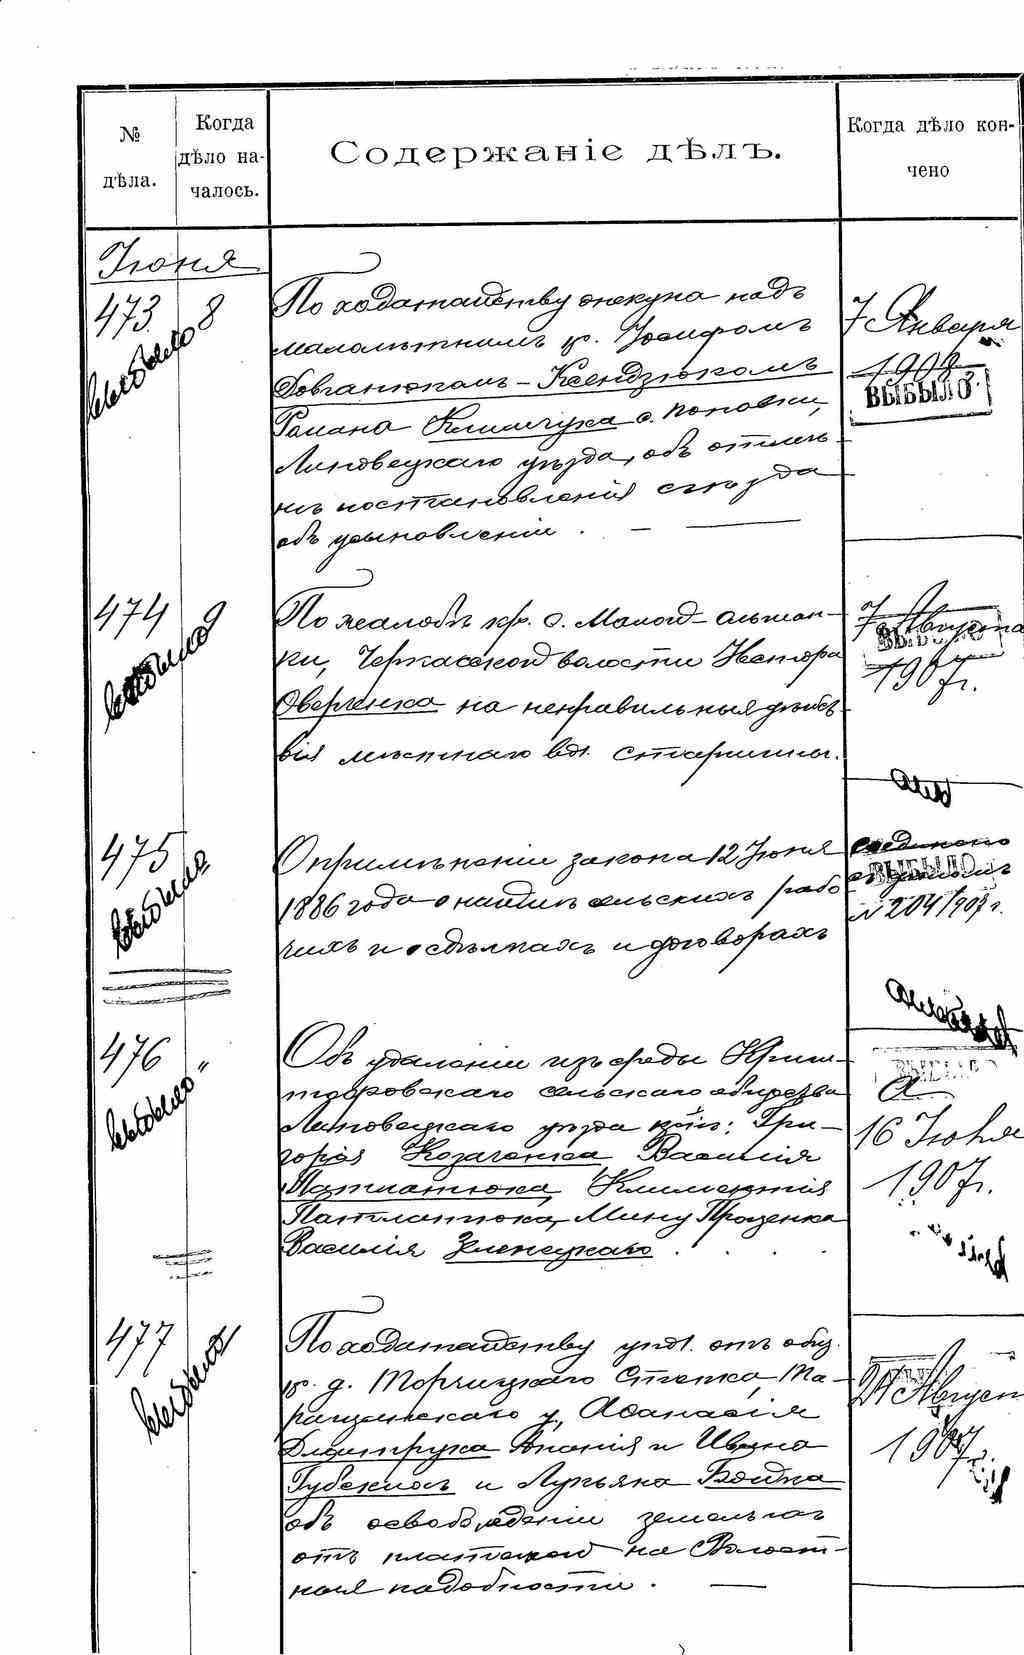 №
дѣла.
Когда
дѣло на-
чалось.
Содержаніе дѣлъ.
Когда дѣло кон-
чено
Іюня
473 8
выбыло
По ходатайству опекуна надъ
малолѣтнимъ кр. Іосифомъ
Довганюкомъ-Ксендзюкомъ
Романа Климчука с. Поповки,
Липовецкаго уѣзда, объ отмѣ-
нѣ постановленія съѣзда
объ усыновленіи. —
7 Января
1908
ВЫБЫЛО
474 9
выбыло
По жалобѣ кр. с. Малой-Ольшан-
ки, Черкасской волости Нестора
Оверченка на неправильныя дѣйст-
вія мѣстнаго вол. старшины.
7 Августа
ВЫБЫЛО
1907 г.
475 "
выбыло
О примѣненіи закона 12 Іюня
1886 года о наймѣ сельскихъ рабо-
чихъ и о сдѣлкахъ и договорахъ
соединено
ВЫБЫЛО
№ 204/907 г.
476 "
выбыло
Объ удаленіи изъ среды
сельскаго общества
Липовецкаго уѣзда кр.: Гри-
горія Козаченка Василія
Патлатюка, Климентія
Патлатюка, Мину Проценка
Василія Зеленецкаго
ВЫБЫЛО
16 Іюня
1907 г.
477
выбыло
По ходатайству упол. отъ общ.
кр. д. Торчицкаго Степка, Та-
ращанскаго у., Афанасія
Дмитрука Ананія и Ивана
Губскихъ и Лукьяна Бойка
объ освобожденіи земель ихъ
отъ платежей на Волост-
ныя надобности. —
24 Август
1907 г.